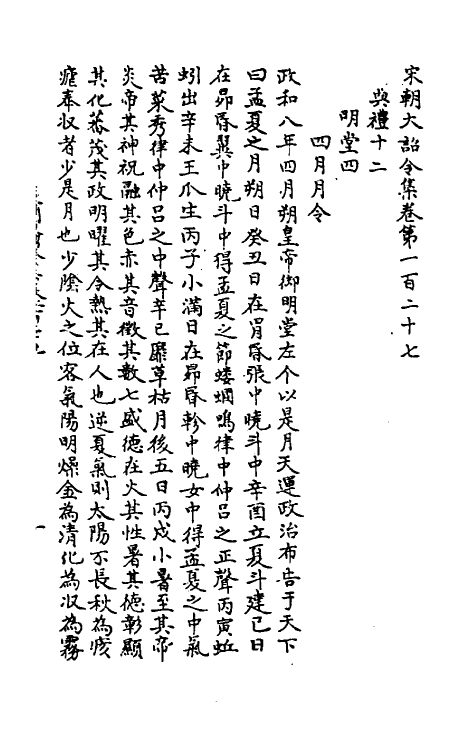 宋朝大詔令集卷第一百二十七
典禮十二
明堂四
四月月令
政和八年四月朔皇帝御明堂左个以是月天運政治布告于天下
曰孟夏之月朔日癸丑日在胃昏張中曉斗中辛酉立夏斗建巳日
在昴昏翼中曉斗中得孟夏之節螻蟈鳴律中仲呂之正聲丙寅蚯
蚓出辛未王瓜生丙子小滿日在昴昏軫中曉女中得孟夏之中氣
苦菜秀律中仲呂之中聲辛巳靡草枯月後五日丙戌小暑至其帝
炎帝其神祝融其色赤其音徵其數七盛德在火其性暑其德彰顯
其化蕃茂其政明曜其令熱其在人也逆夏氣則太陽不長秋為痎
瘧奉収者少是月也少陰火之位客氣陽明燥金為清化為収為霧
一